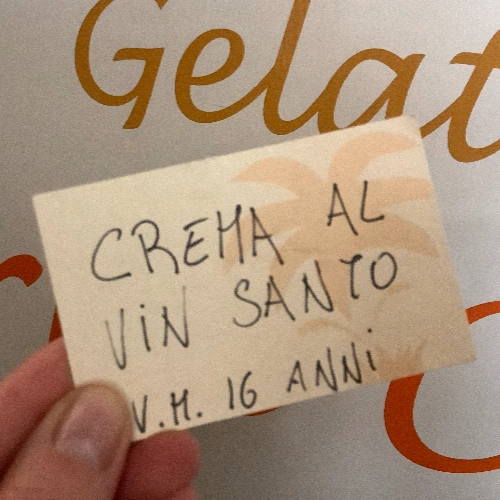 Gelat
CREMA AL
VIN SANTO
V.M. 16 ANNi